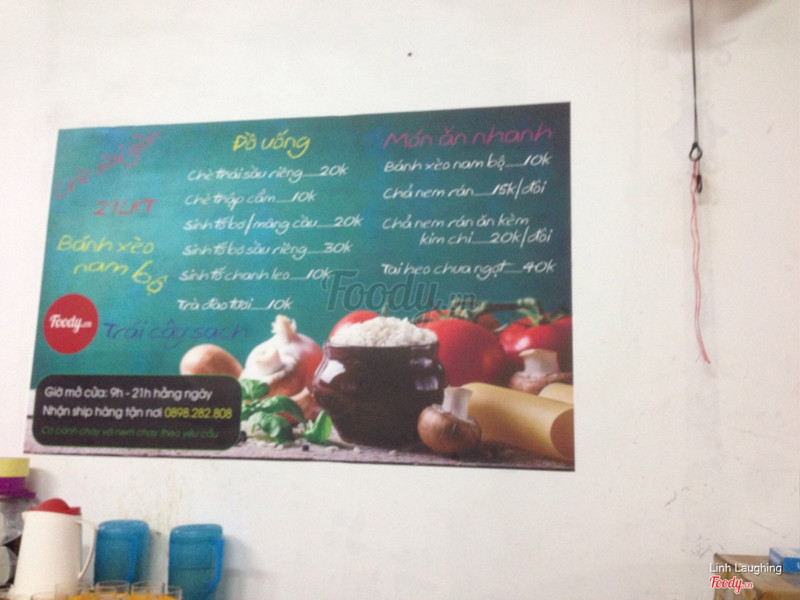 21LPT
Bánh xèo
nam bộ
Foody.vn
Trái cây sạch
Đồ uống
Chè thái sầu riêng......20k
Chè thập cẩm......10k
Sinh tố bơ/mãng cầu......20k
Sinh tố bơ sầu riêng......30k
Sinh tố chanh leo......10k
Trà đào tươi......10k
Món ăn nhanh
Bánh xèo nam bộ......10k
Chả nem rán......15k/đôi
Chả nem rán ăn kèm
kim chi......20k/đôi
Tai heo chua ngọt......40k
Foody.vn
Giờ mở cửa: 9h - 21h hằng ngày
Nhận ship hàng tận nơi 0898.282.808
Có bánh chay và nem chay theo yêu cầu
Linh Laughing
Foody.vn